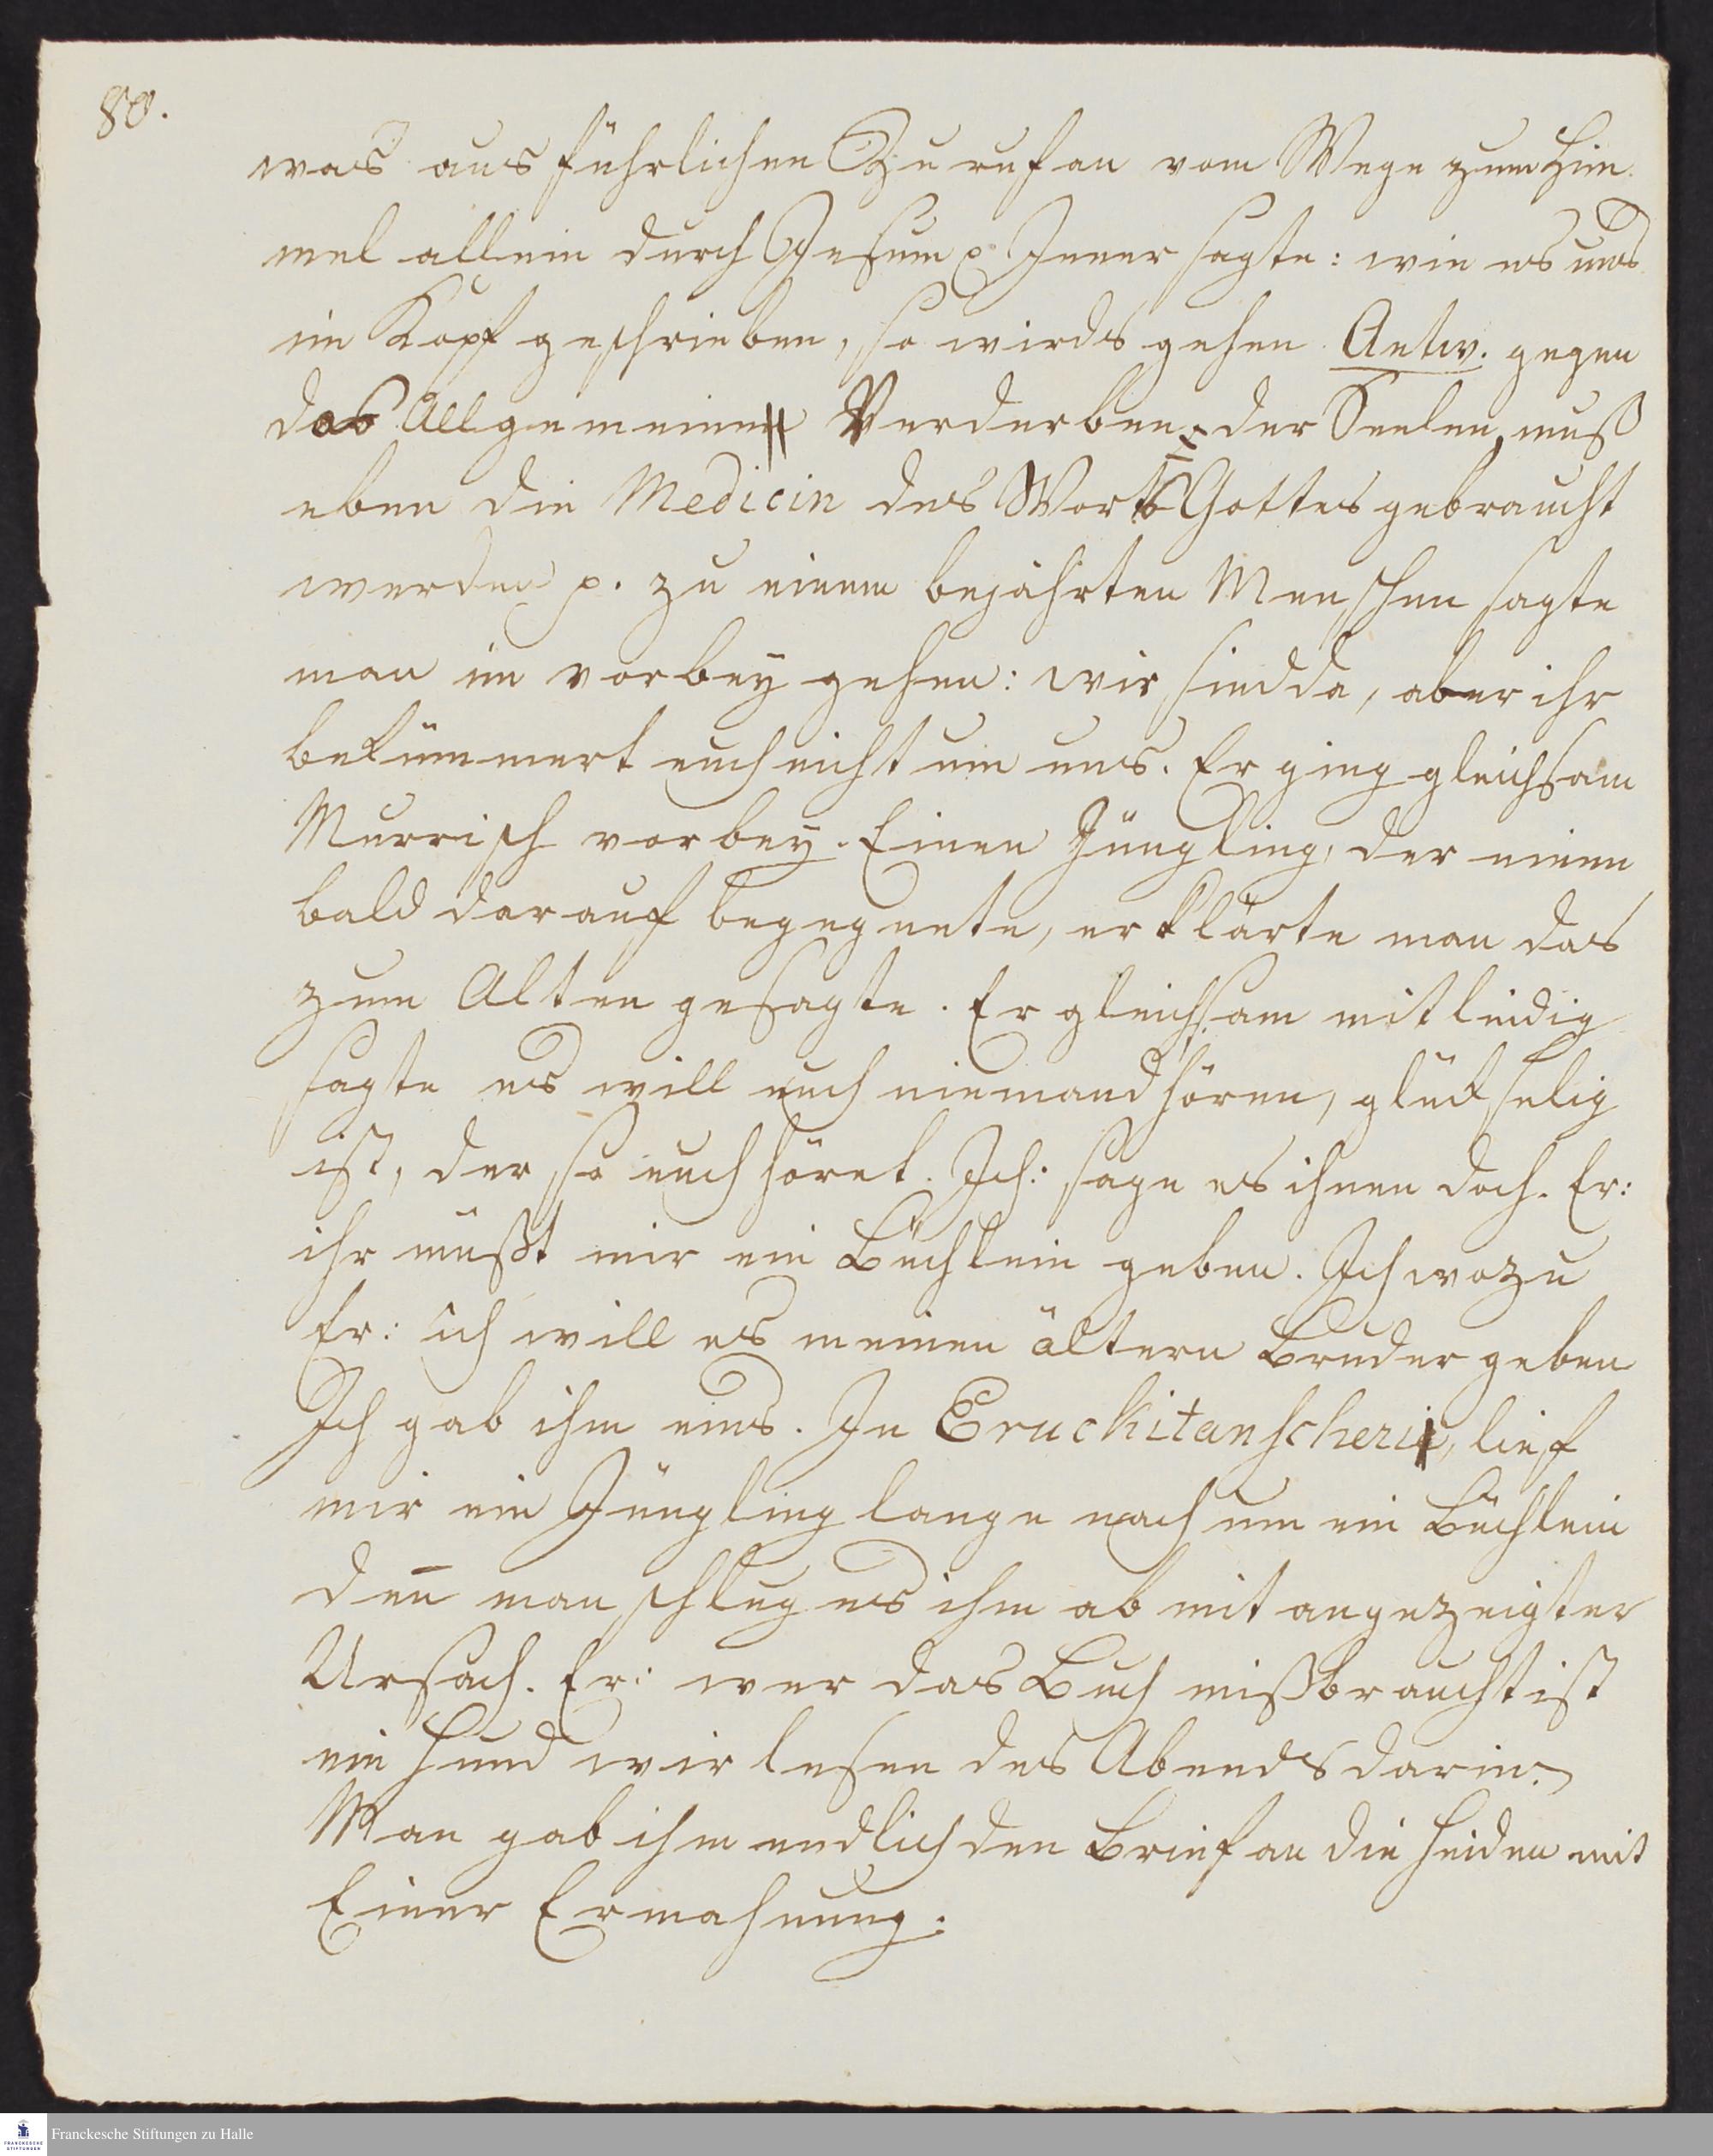 80.
was ausführlichen Zurufan vom Wege zum Him-
mel allein durch Jesum p. Jener sagte: wie es uns
im Kopf geschrieben, so wirds gehen Antw. gegen
das Allgemeine Verderben der Seelen, muß
eben die Medicin des Worts Gottes gebraucht
werden p. zu einem bejahrten Menschen sagte
man im vorbey gehen: wir sind da, aber ihr
bekümmert euch nicht um uns. Er ging gleichsam
Murrisch vorbey. Einen Jüngling, der einem
bald darauf begegnete, erklärte man das
zum Alten gesagte. Er gleichsam mitleidig
sagte es will euch niemand hören, glückselig
ist, der so euch höret. Ich: sage es ihnen doch. Er:
ihr müßt mir ein Büchlein geben. Ich wozu
Er: ich will es meinen ältern Bruder geben
Ich gab ihm eins. In Eruckitanscheri, lief
mir ein Jüngling lange nach um ein Büchlein
den̅ man schlug es ihm ab mit angezeigter
Ursach. Er: wer das Buch mißbraucht ist
ein Hund wir lesen des Abends darin.
Man gab ihm endlich den Brief an die Heiden mit
Einer Ermahnung.
Franckesche Stiftungen zu Halle